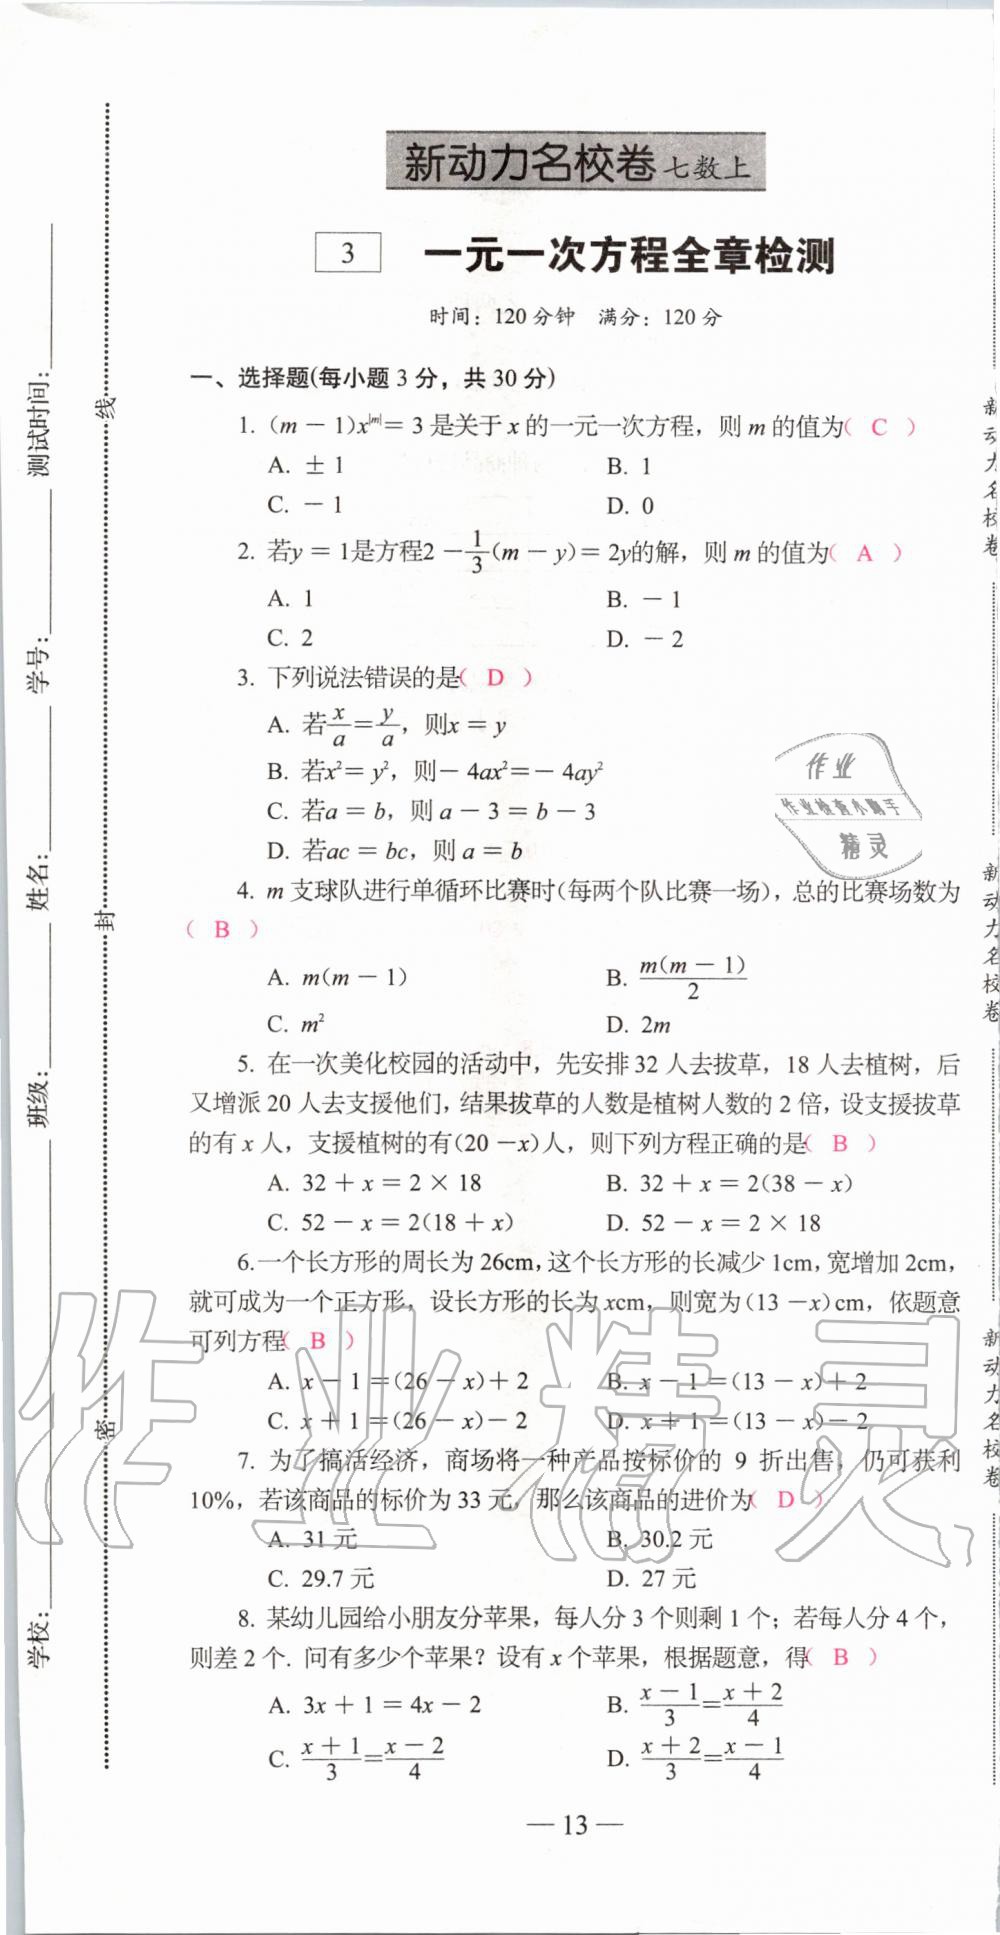 新动力名校卷 七数上
3 一元一次方程全章检测
时间：120分钟 满分：120分
一、选择题(每小题3分，共30分)
1. (m－1)x|m|＝3是关于x的一元一次方程，则m的值为( C )
A. ±1 B. 1
C. －1 D. 0
2. 若y＝1是方程2－1/3(m－y)＝2y的解，则m的值为( A )
A. 1 B. －1
C. 2 D. －2
3. 下列说法错误的是( D )
A. 若x/a＝y/a，则x＝y
B. 若x²＝y²，则－4ax²＝－4ay²
C. 若a＝b，则a－3＝b－3
D. 若ac＝bc，则a＝b
4. m支球队进行单循环比赛时(每两个队比赛一场)，总的比赛场数为
( B )
A. m(m－1) B. m(m－1)/2
C. m² D. 2m
5. 在一次美化校园的活动中，先安排32人去拔草，18人去植树，后
又增派20人去支援他们，结果拔草的人数是植树人数的2倍，设支援拔草
的有x人，支援植树的有(20－x)人，则下列方程正确的是( B )
A. 32＋x＝2×18 B. 32＋x＝2(38－x)
C. 52－x＝2(18＋x) D. 52－x＝2×18
6.一个长方形的周长为26cm，这个长方形的长减少1cm，宽增加2cm，
就可成为一个正方形，设长方形的长为xcm，则宽为(13－x)cm，依题意
可列方程( B )
A. x－1＝(26－x)＋2 B. x－1＝(13－x)＋2
C. x＋1＝(26－x)－2 D. x＋1＝(13－x)－2
7. 为了搞活经济，商场将一种产品按标价的9折出售，仍可获利
10%，若该商品的标价为33元，那么该商品的进价为( D )
A. 31元 B. 30.2元
C. 29.7元 D. 27元
8. 某幼儿园给小朋友分苹果，每人分3个则剩1个；若每人分4个，
则差2个. 问有多少个苹果？设有x个苹果，根据题意，得( B )
A. 3x＋1＝4x－2 B. (x－1)/3＝(x＋2)/4
C. (x＋1)/3＝(x－2)/4 D. (x＋2)/3＝(x－1)/4
— 13 —
学校： 班级： 姓名： 学号： 测试时间：
密 封 线
新动力名校卷
新动力名校卷
新动力名校卷
作业
作业检查小助手
精灵
作业精灵